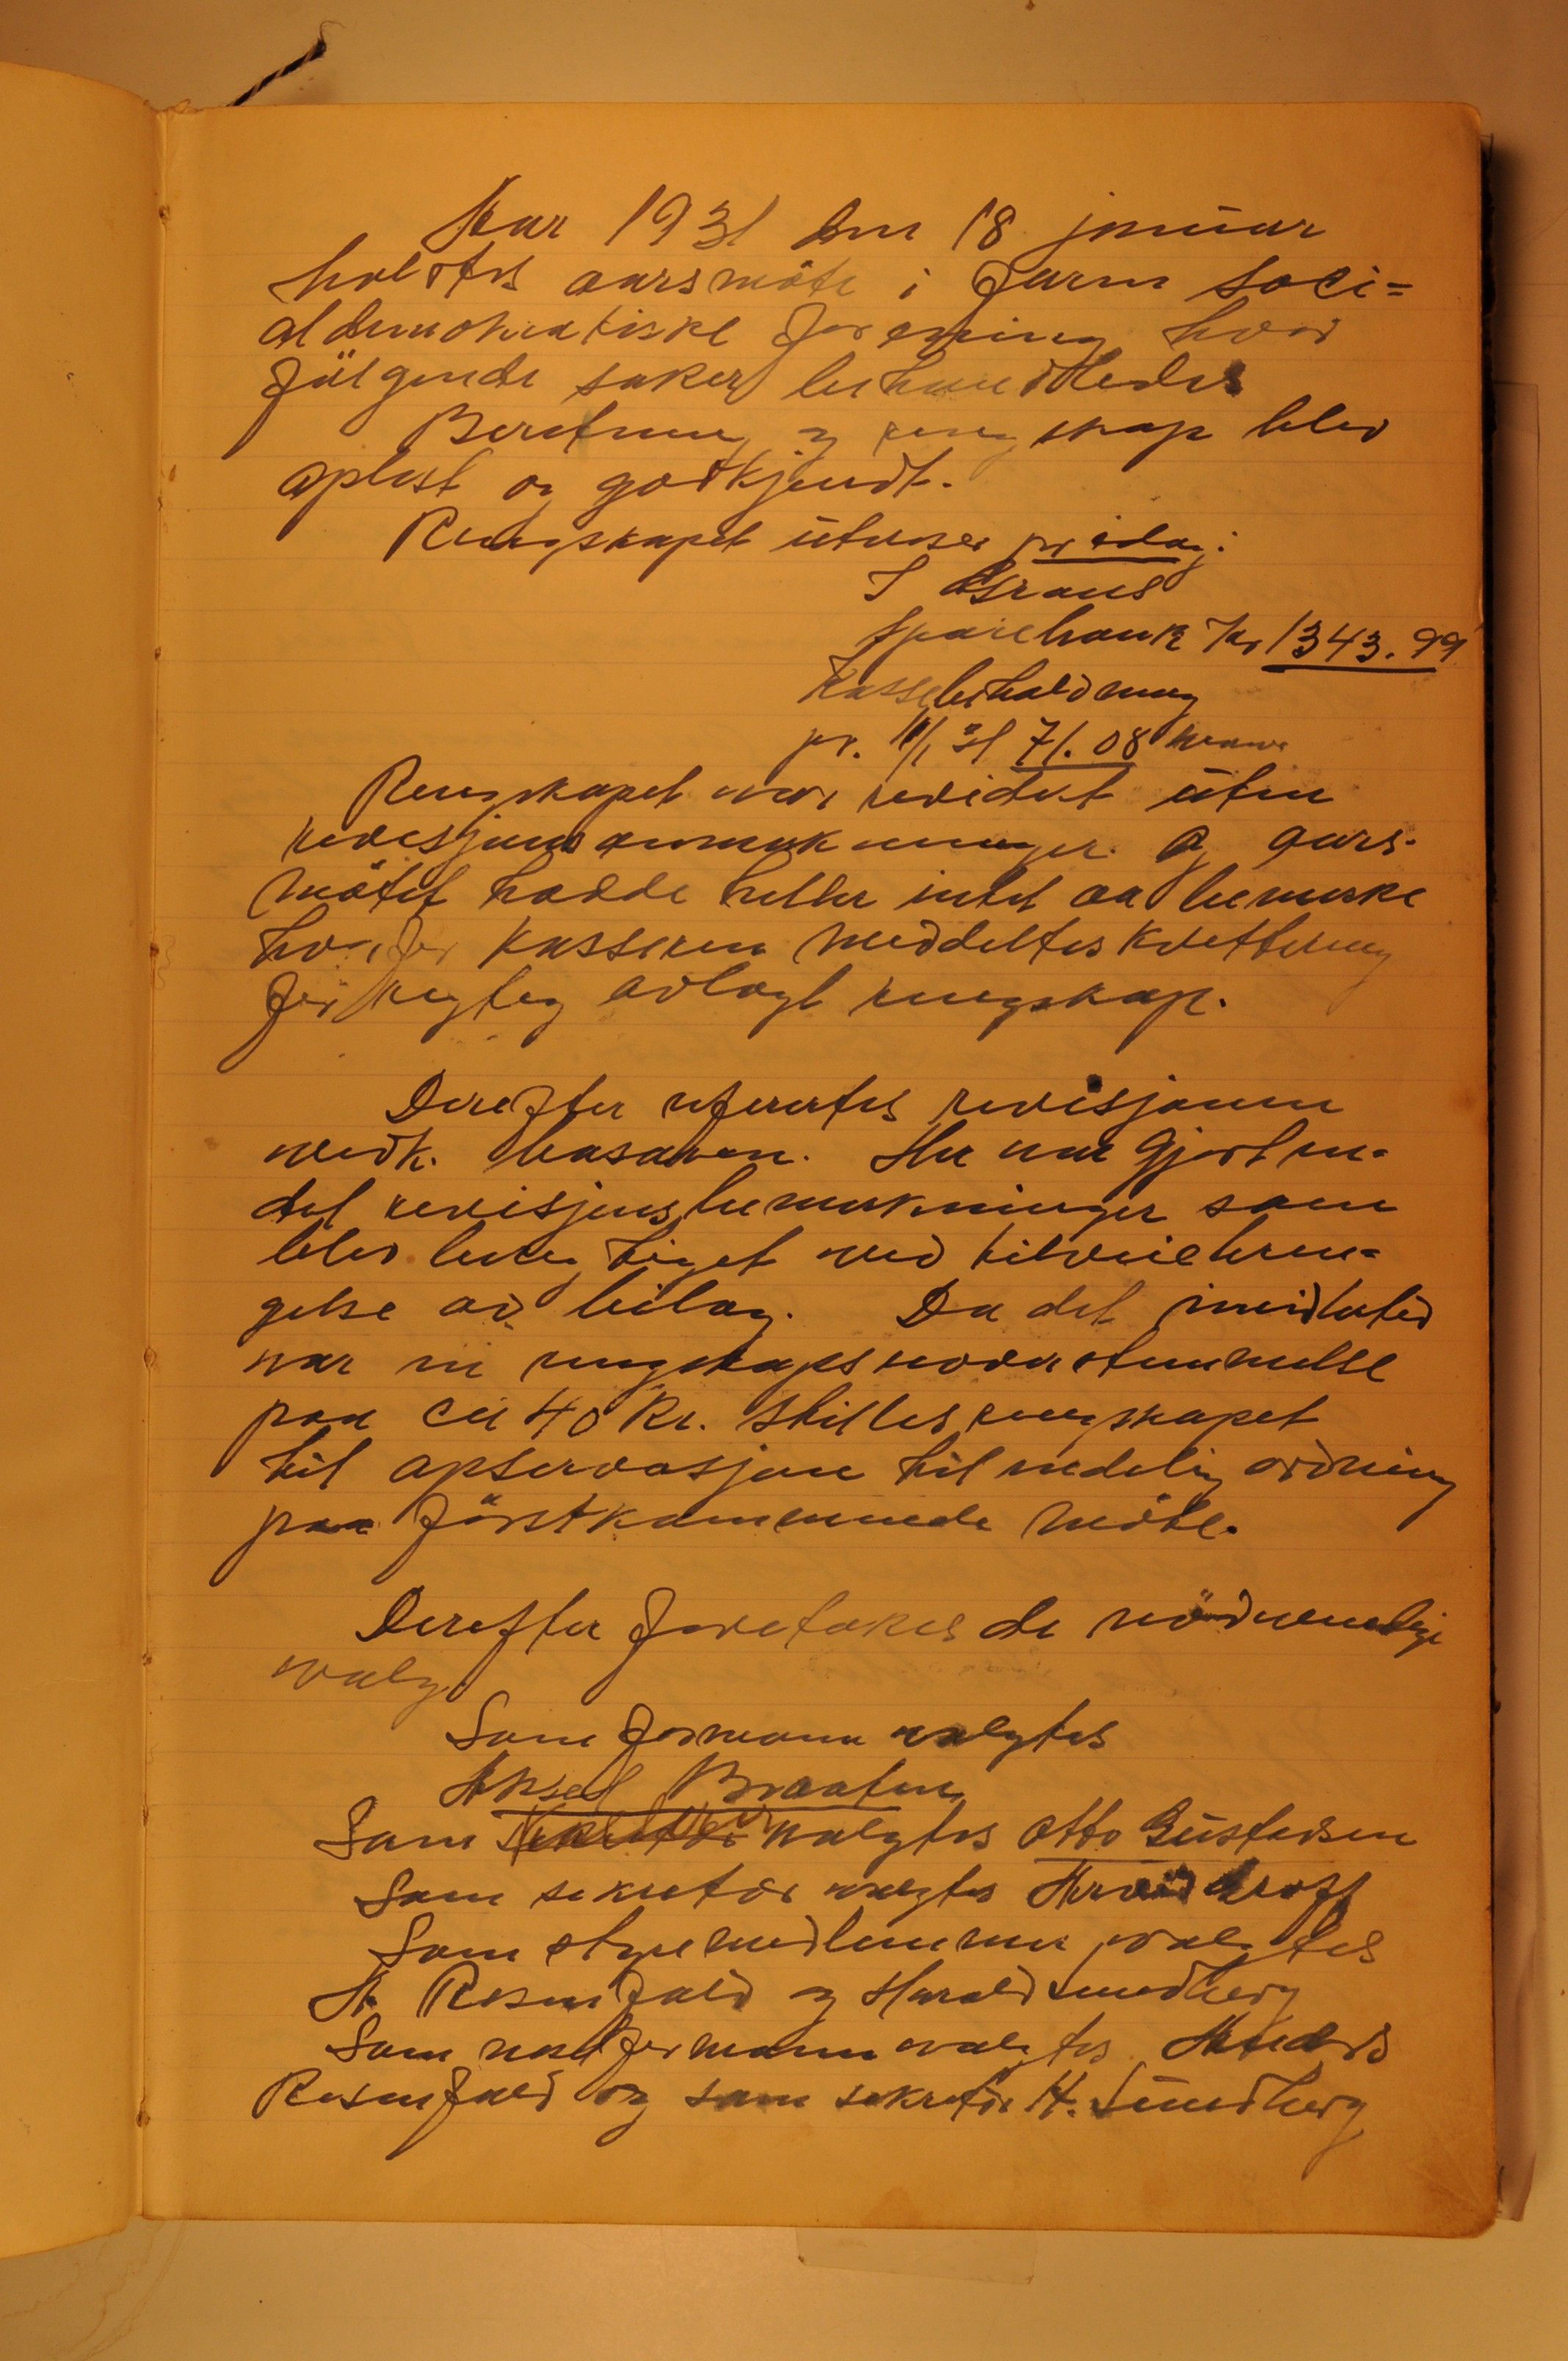 Aar 1931 den 18 januar
holdtes aarsmöte i Furu soci=
aldemokratiske forening hvor
fölgende saker behandledes
Beretning og regnskap blev
oplest og godkjendt.
Regnskapet utviser pr idag:
I Grans
Sparebank Kr 1343.99
Kassebeholdning
pr. 11/1 31 71.08 kroner
Regnskapet var revidert uten
revisjonsanmerkninger. Og aars-
mötet hadde heller intet aa bemerke
hvorfor kasseren meddeltes kvittering
for rigtig avlagt regnskap.
Derefter refertes revisjonen
vedk. basaren. Her var gjort en-
del revisjonsbemerkninger som
blev berigtiget ved tilveiebren=
gelse av bilag. Da det imidlertid
var en regnskapsuoverstemmelse
paa ca 40 Kr. stilles regnskapet
til opservasjon til endelig ordning
paa förstkommende möte.
Derefter foretokes de nödvendige
valg.
Som formann valgtes
Aksel Braaten
Som kasserer valgtes Otto Gustavsen
Som sekretær valgtes
Som styremedlemmer valgtes
A. Rosenfald og Harald Sundberg
Som nestformann valgtes
Rosenfald og som sekretær H. Sundberg